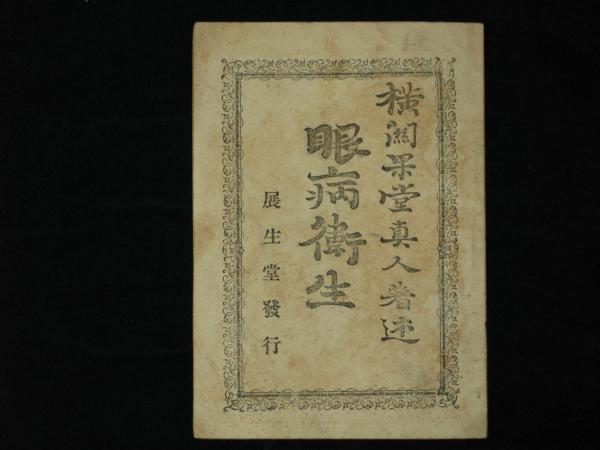 横関果堂真人著述
眼病衛生
展生堂發行